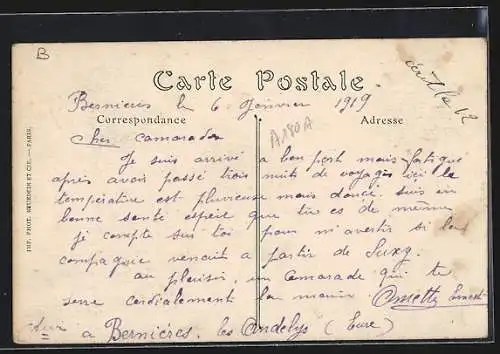 B
écrit le 12
Carte Postale
Bernieres le 6 Janvier 1919
Correspondance
Adresse
A180A
Cher camarade
Je suis arrivé a bon port mais fatigué
après avoir passé trois nuits de voyages ici la
température est pluvieuse mais douce. suis en
bonne santé espere que tu es de même
je compte sur toi pour m'avertir si la
compagnie venait a partir de Suxy.
au plaisir, un camarade qui te
serre cordialement la main Ometty Ernest
a Bernières, les Andelys (Eure)
IMP. PHOT. NEURDEIN ET CIE. — PARIS.